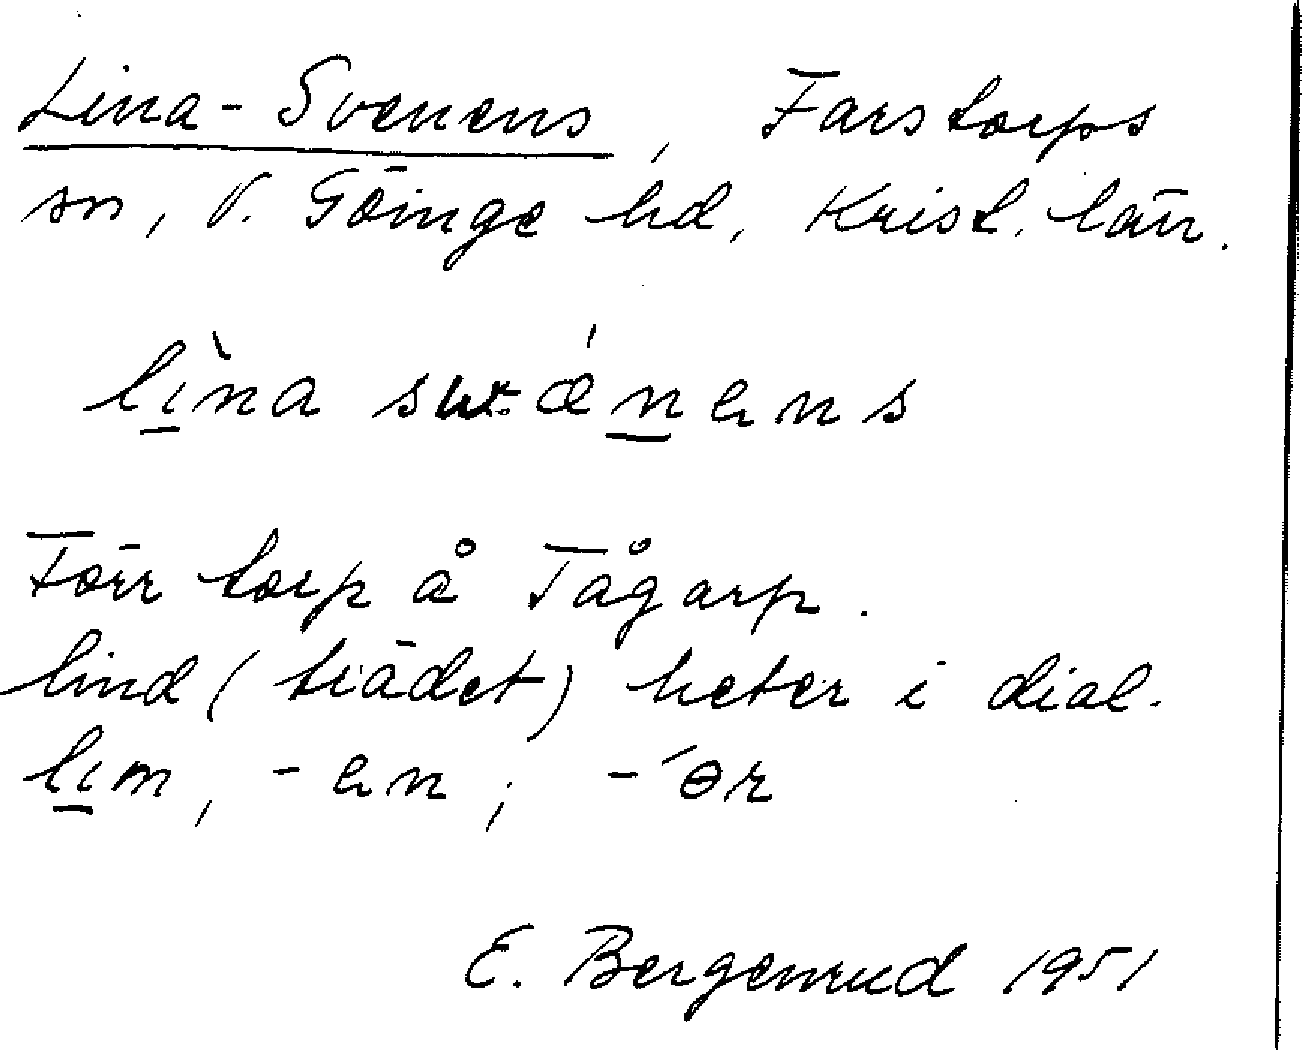 Lina-Svenens, Farstorps
sn, V. Göinge hd, Krist. län.
lìna swænens
Förr torp å Tågarp.
lind (trädet) heter i dial.
lim, -en; -ər
E. Bergenrud 1951